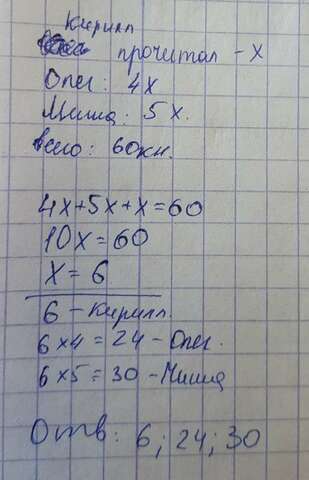 Кирилл
прочитал - х
Олег: 4х
Миша: 5х.
всего: 60кн.
4х+5х+х=60
10х=60
х=6
6 - Кирилл.
6×4=24 - Олег.
6×5=30 - Миша
Отв: 6; 24; 30